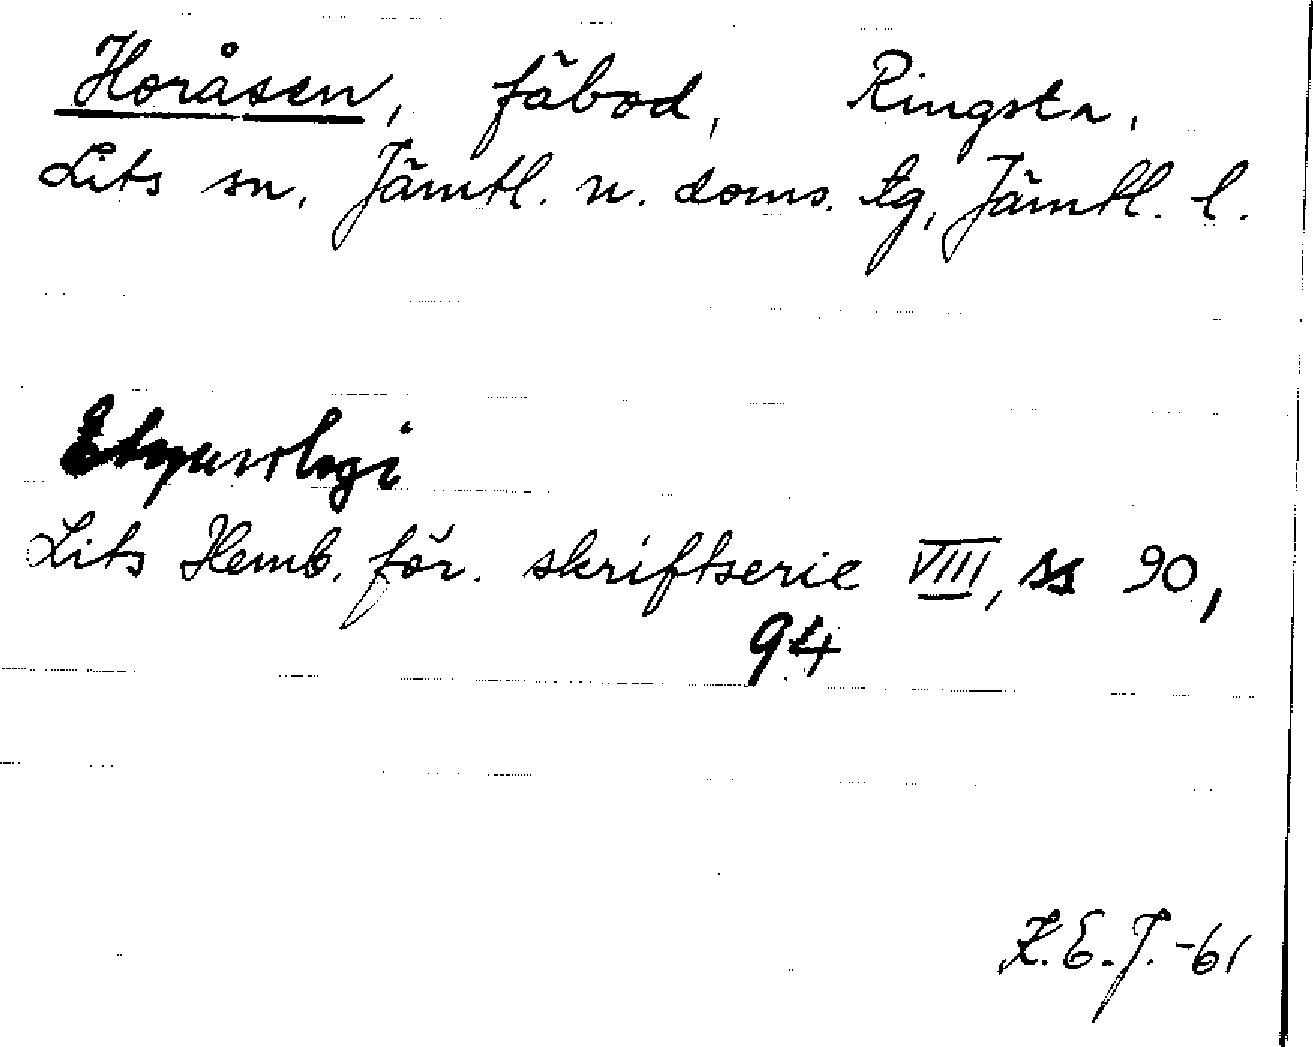 Horåsen, fäbod, Ringsta,
Lits sn, Jämtl. n. doms. tg, Jämtl. l.
Etymologi
Lits Hemb. för. skriftserie VIII, ss 90,
94
K.E.J. -61